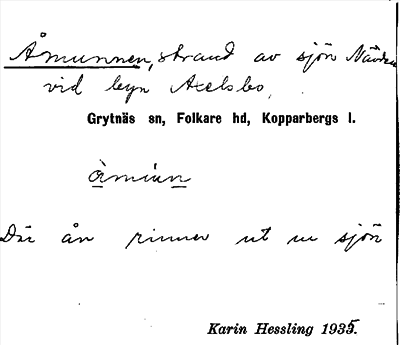 Åmunnen, strand av sjön
vid byn Axelsbo,
Grytnäs sn, Folkare hd, Kopparbergs l.
Där ån rinner ut ur sjön
Karin Hessling 1935.